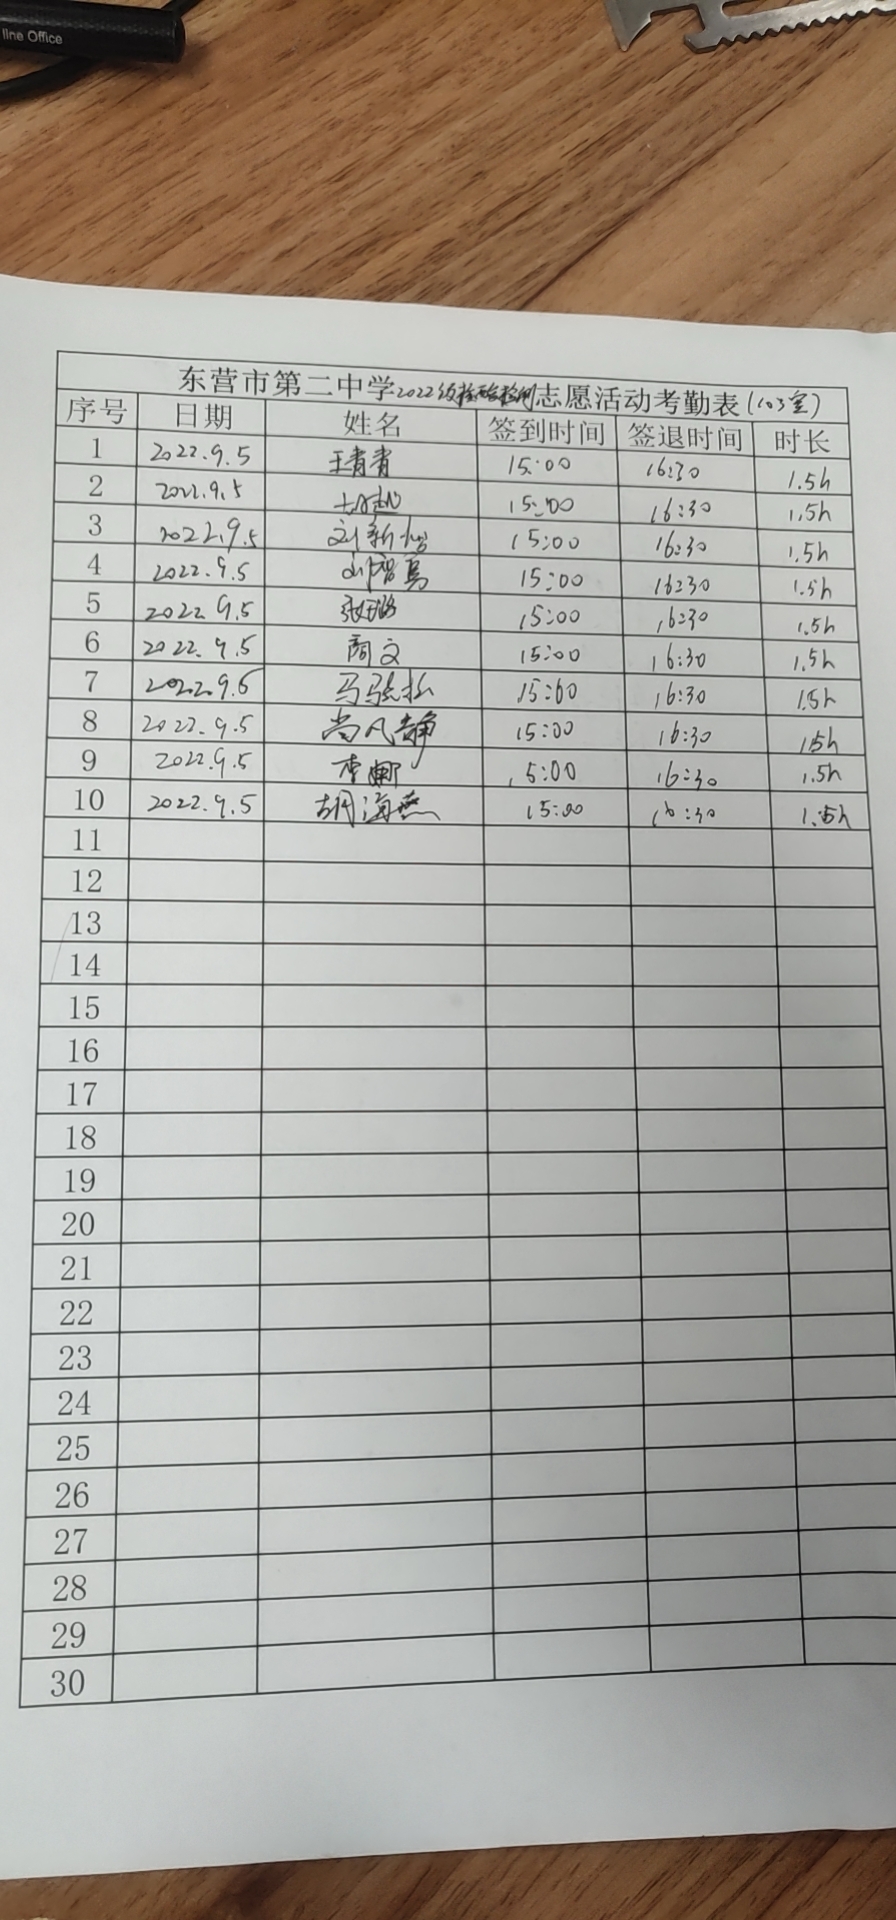 line Office
东营市第二中学2022级核酸检测志愿活动考勤表(103室)
序号 日期 姓名 签到时间 签退时间 时长
1 2022.9.5 王青青 15:00 16:30 1.5h
2 2022.9.5 15:00 16:30 1.5h
3 2022.9.5 刘新 15:00 16:30 1.5h
4 2022.9.5 15:00 16:30 1.5h
5 2022.9.5 张璐 15:00 16:30 1.5h
6 2022.9.5 15:00 16:30 1.5h
7 2022.9.5 15:00 16:30 1.5h
8 2022.9.5 尚凡静 15:00 16:30 1.5h
9 2022.9.5 李娜 15:00 16:30 1.5h
10 2022.9.5 胡海燕 15:00 16:30 1.5h
11
12
13
14
15
16
17
18
19
20
21
22
23
24
25
26
27
28
29
30